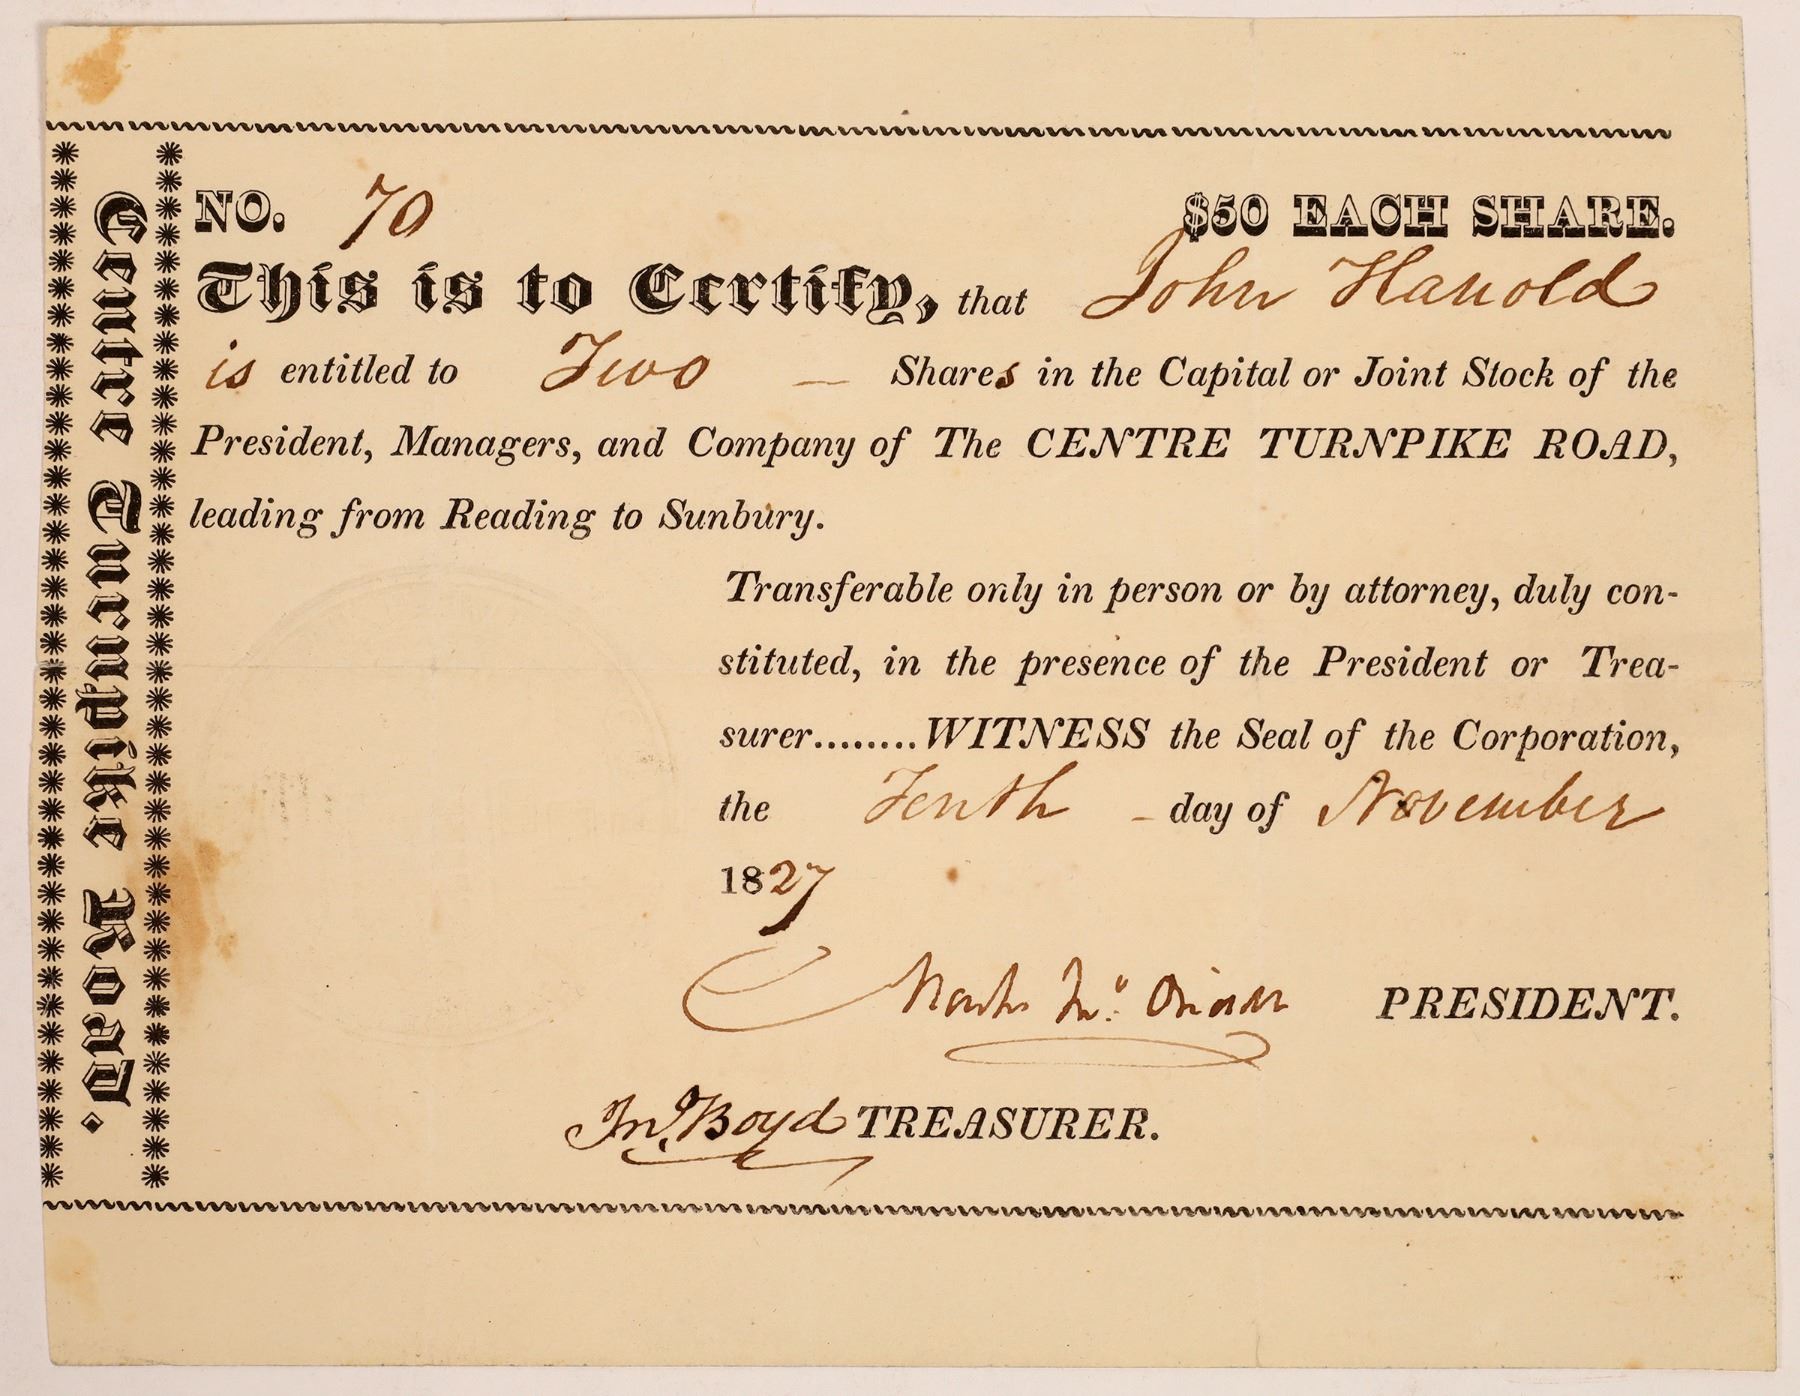 Centre Turnpike Road.
NO. 70
$50 EACH SHARE.
This is to Certify, that John Hanold
is entitled to Two — Shares in the Capital or Joint Stock of the
President, Managers, and Company of The CENTRE TURNPIKE ROAD,
leading from Reading to Sunbury.
Transferable only in person or by attorney, duly con-
stituted, in the presence of the President or Trea-
surer........WITNESS the Seal of the Corporation,
the Tenth - day of November
1827
PRESIDENT.
Jno. Boyd TREASURER.